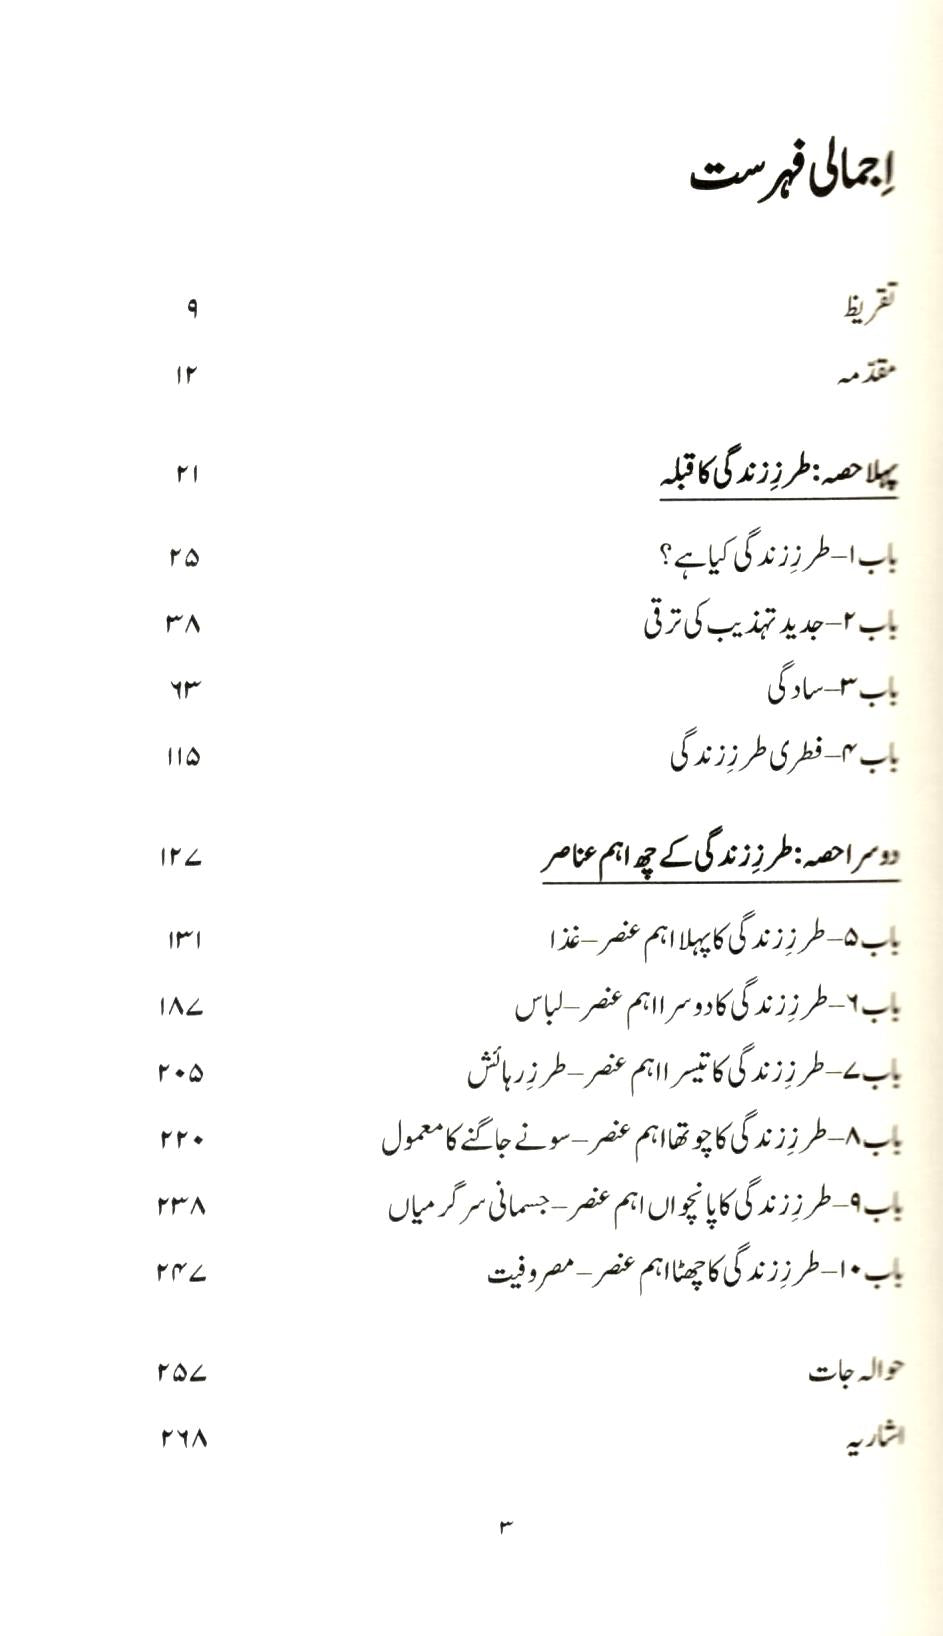 اِجمالی فہرست
تقریظ ۹
مقدّمہ ۱۲
پہلا حصہ: طرزِ زندگی کا قبلہ ۲۱
باب ۱–طرزِ زندگی کیا ہے؟ ۲۵
باب ۲–جدید تہذیب کی ترقی ۳۸
باب ۳–سادگی ۶۳
باب ۴–فطری طرزِ زندگی ۱۱۵
دوسرا حصہ: طرزِ زندگی کے چھ اہم عناصر ۱۲۷
باب ۵–طرزِ زندگی کا پہلا اہم عنصر–غذا ۱۳۱
باب ۶–طرزِ زندگی کا دوسرا اہم عنصر–لباس ۱۸۷
باب ۷–طرزِ زندگی کا تیسرا اہم عنصر–طرزِ رہائش ۲۰۵
باب ۸–طرزِ زندگی کا چوتھا اہم عنصر–سونے جاگنے کا معمول ۲۲۰
باب ۹–طرزِ زندگی کا پانچواں اہم عنصر–جسمانی سرگرمیاں ۲۳۸
باب ۱۰–طرزِ زندگی کا چھٹا اہم عنصر–مصروفیت ۲۴۷
حوالہ جات ۲۵۷
اشاریہ ۲۶۸
۳